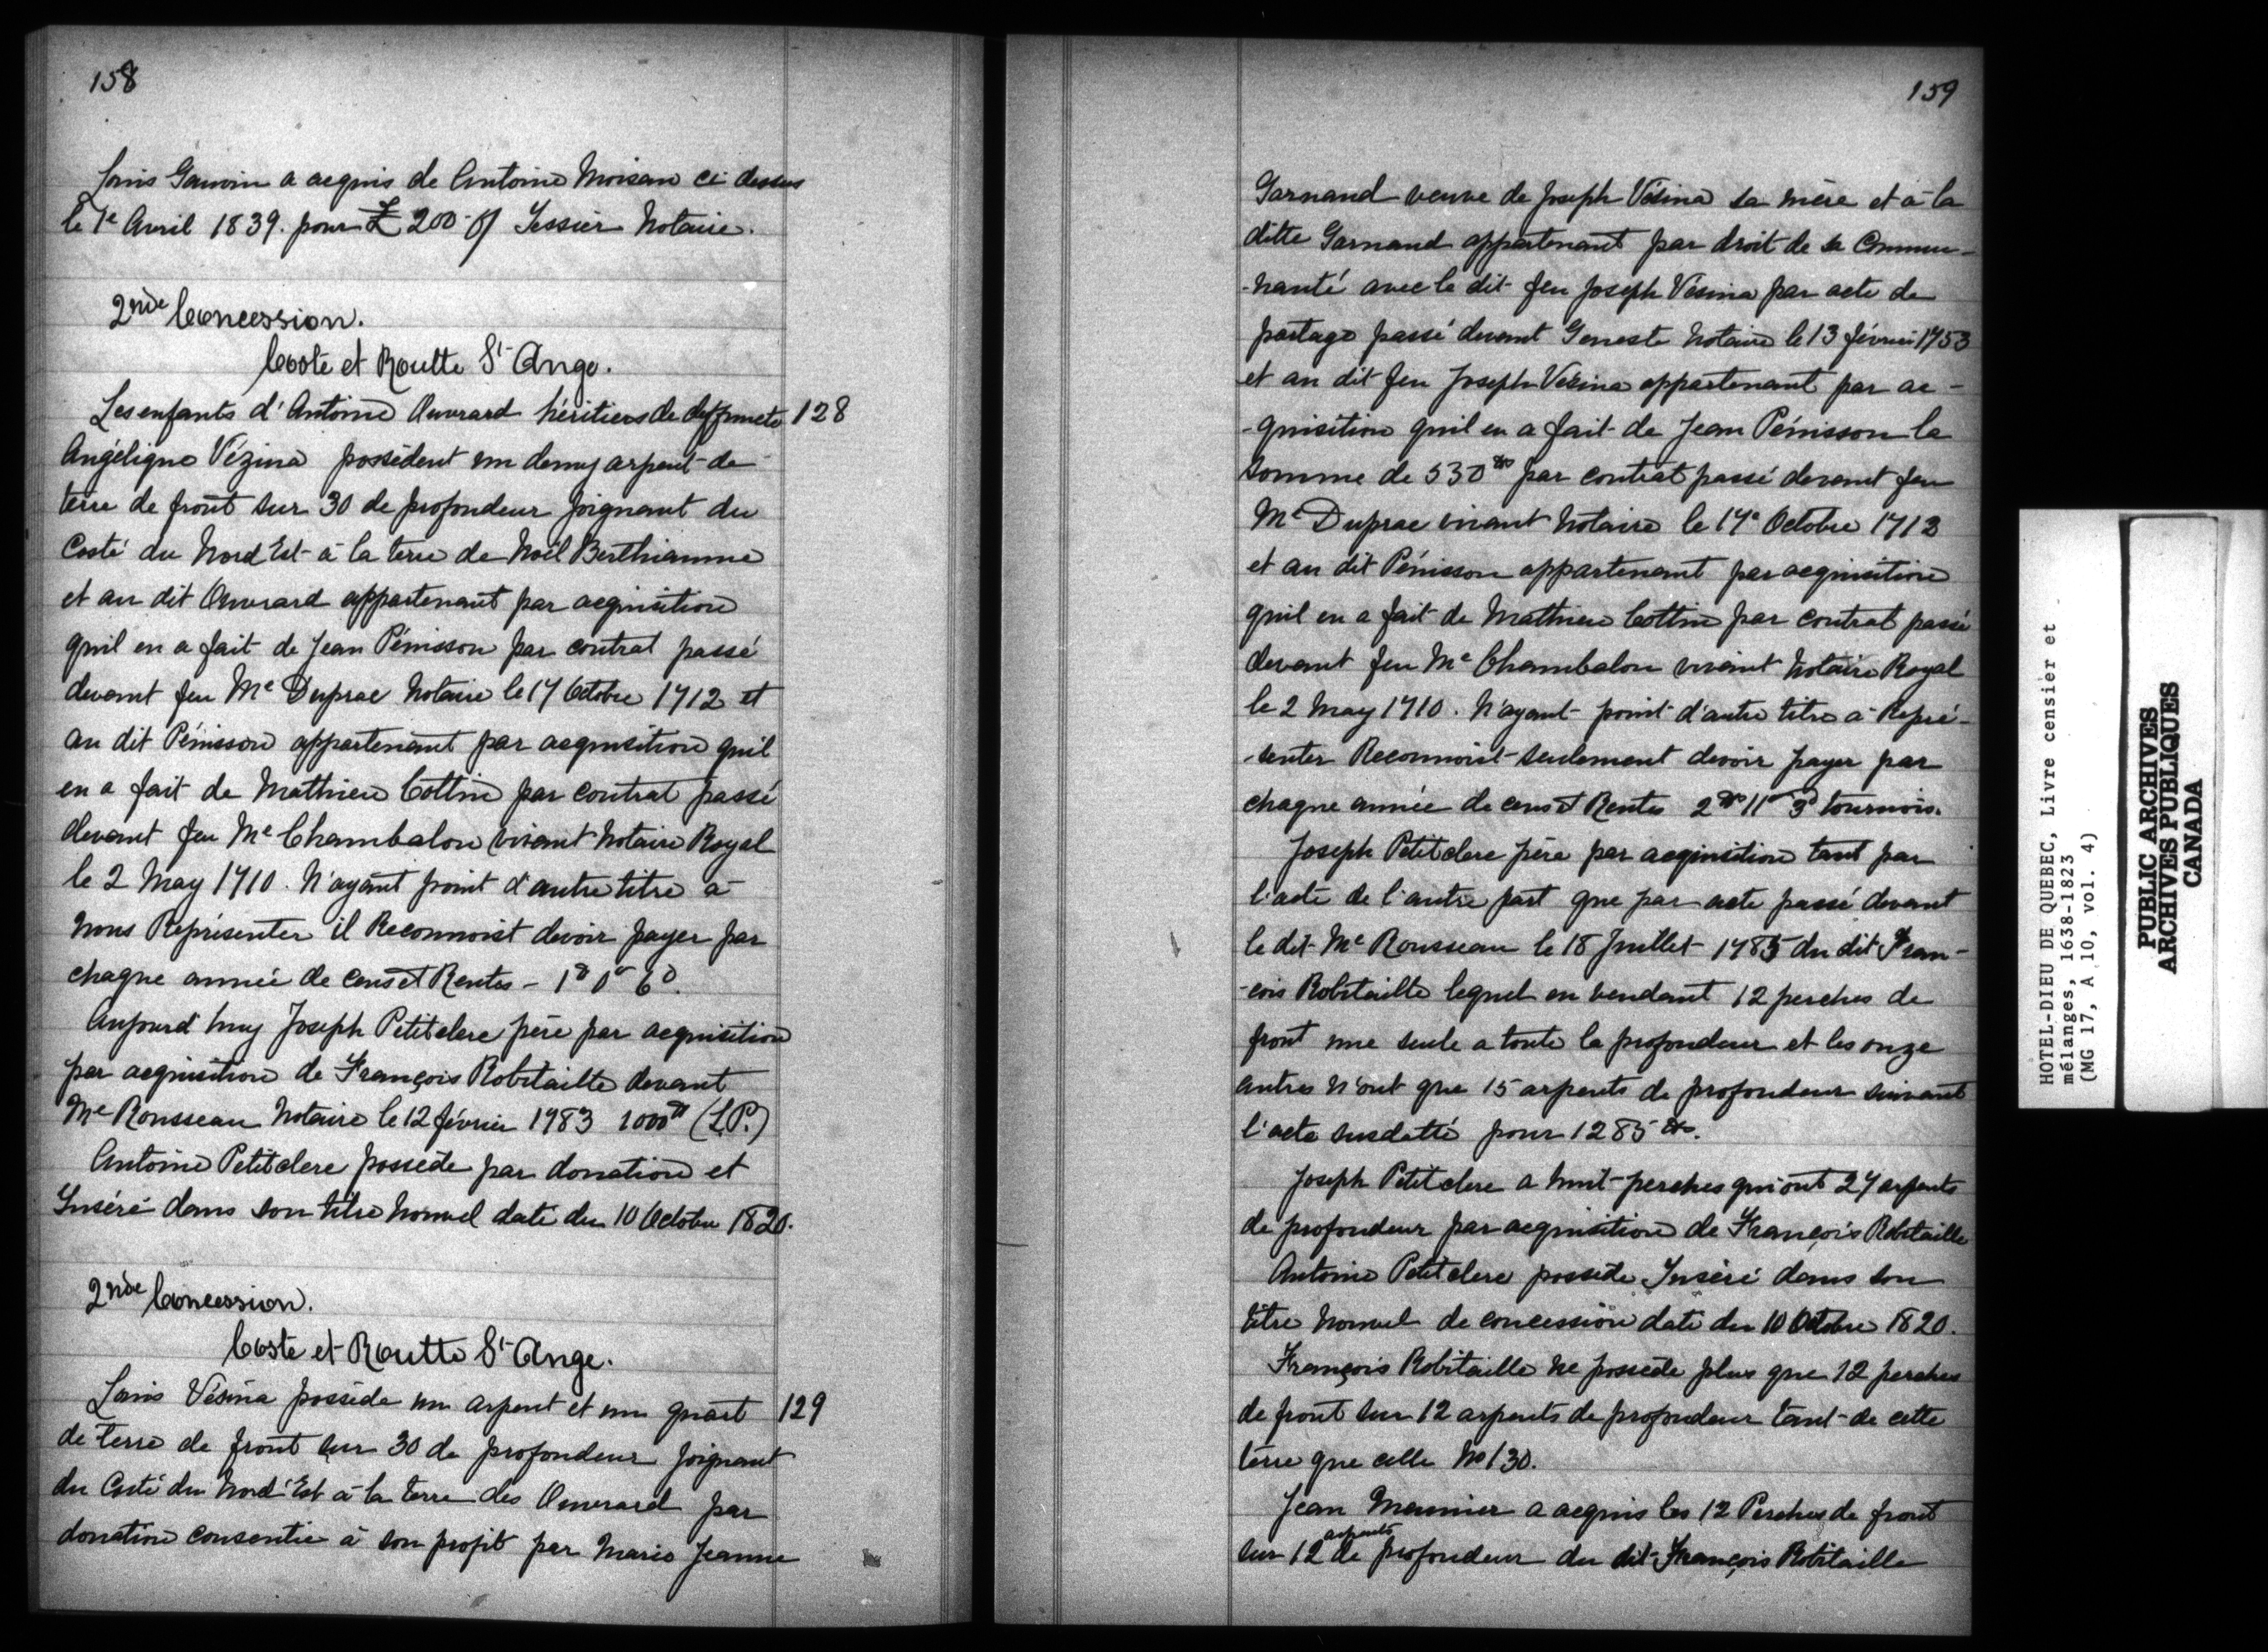 158
Louis Gauvin a acquis de Antoine Moisan ci-dessus
le 1e Avril 1839. pour £ 200- Tessier Notaire.
2nde Concession.
Coste et Routte St Ange.
Les enfants d'Antoine Ouvrard héritiers de deffuncte 128
Angélique Vézina possèdent un demy arpent de
terre de front sur 30 de profondeur joignant du
Costé du Nord Est à la terre de Noël Berthiaume
et au dit Ouvrard appartenant par acquisition
quil en a fait de Jean Pénisson par contrat passé
devant feu Me Duprac Notaire le 17 Octobre 1712 et
au dit Pénisson appartenant par acquisition quil
en a fait de Mathieu Cottin par contrat passé
devant feu Me Chambalon vivant Notaire Royal
le 2 May 1710. N'ayant point d'autre titre à
nous Représenter il Reconnoist devoir payer par
chaque année de cens et Rentes - 1# 0s 6d.
Aujourd'huy Joseph Petitclerc père par acquisition
par acquisition de François Robitaille devant
Me Rousseau Notaire le 12 février 1783 1000# (L.P.)
Antoine Petitclerc possède par donation et
Inséré dans son titre nouvel daté du 10 Octobre 1820.
2nde Concession.
Coste et Routte St Ange.
Louis Vésina possède un arpent et un quart 129
de terre de front sur 30 de profondeur joignant
du Costé du Nord Est à la terre des Ouvrard par
donation consentie à son profit par Marie Jeanne
159
Garnand veuve de Joseph Vésina sa mère et à la
ditte Garnand appartenant par droit de sa Commu-
-nauté avec le dit feu Joseph Vésina par acte de
partage passé devant Geneste Notaire le 13 février 1753
et au dit feu Joseph Vézina appartenant par ac-
-quisition quil en a fait de Jean Pénisson la
somme de 530# par contrat passé devant feu
Me Duprac vivant Notaire le 17e Octobre 1712
et au dit Pénisson appartenant par acquisition
quil en a fait de Mathieu Cottin par contrat passé
devant feu Me Chambalon vivant Notaire Royal
le 2 May 1710. N'ayant point d'autre titre à Repré-
-senter Reconnoist seulement devoir payer par
chaque année de cens et Rentes 2# 11s 3d tournois.
Joseph Petitclerc père par acquisition tant par
l'acte de l'autre part que par acte passé devant
le dit Me Rousseau le 18 Juillet 1785 du dit Fran-
-çois Robitaille lequel en vendant 12 perches de
front une seule a toute la profondeur et les onze
autres n'ont que 15 arpents de profondeur suivant
l'acte susdatté pour 1285#.
Joseph Petitclerc a huit perches qui ont 27 arpents
de profondeur par acquisition de François Robitaille
Antoine Petitclerc possède Inséré dans son
titre nouvel de concession daté du 10 Octobre 1820.
François Robitaille ne possède plus que 12 perches
de front sur 12 arpents de profondeur tant de cette
terre que celle No 130.
Jean Meunier a acquis les 12 Perches de front
sur 12 arpents de profondeur du dit François Robitaille
HOTEL-DIEU DE QUEBEC, Livre censier et
mélanges, 1638-1823
(MG 17, A 10, vol. 4)
PUBLIC ARCHIVES
ARCHIVES PUBLIQUES
CANADA